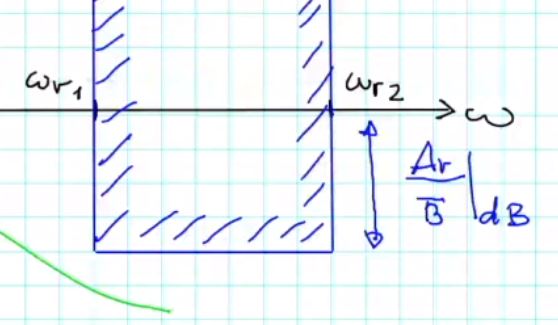 ωr1
ωr2
ω
Ar
B | dB